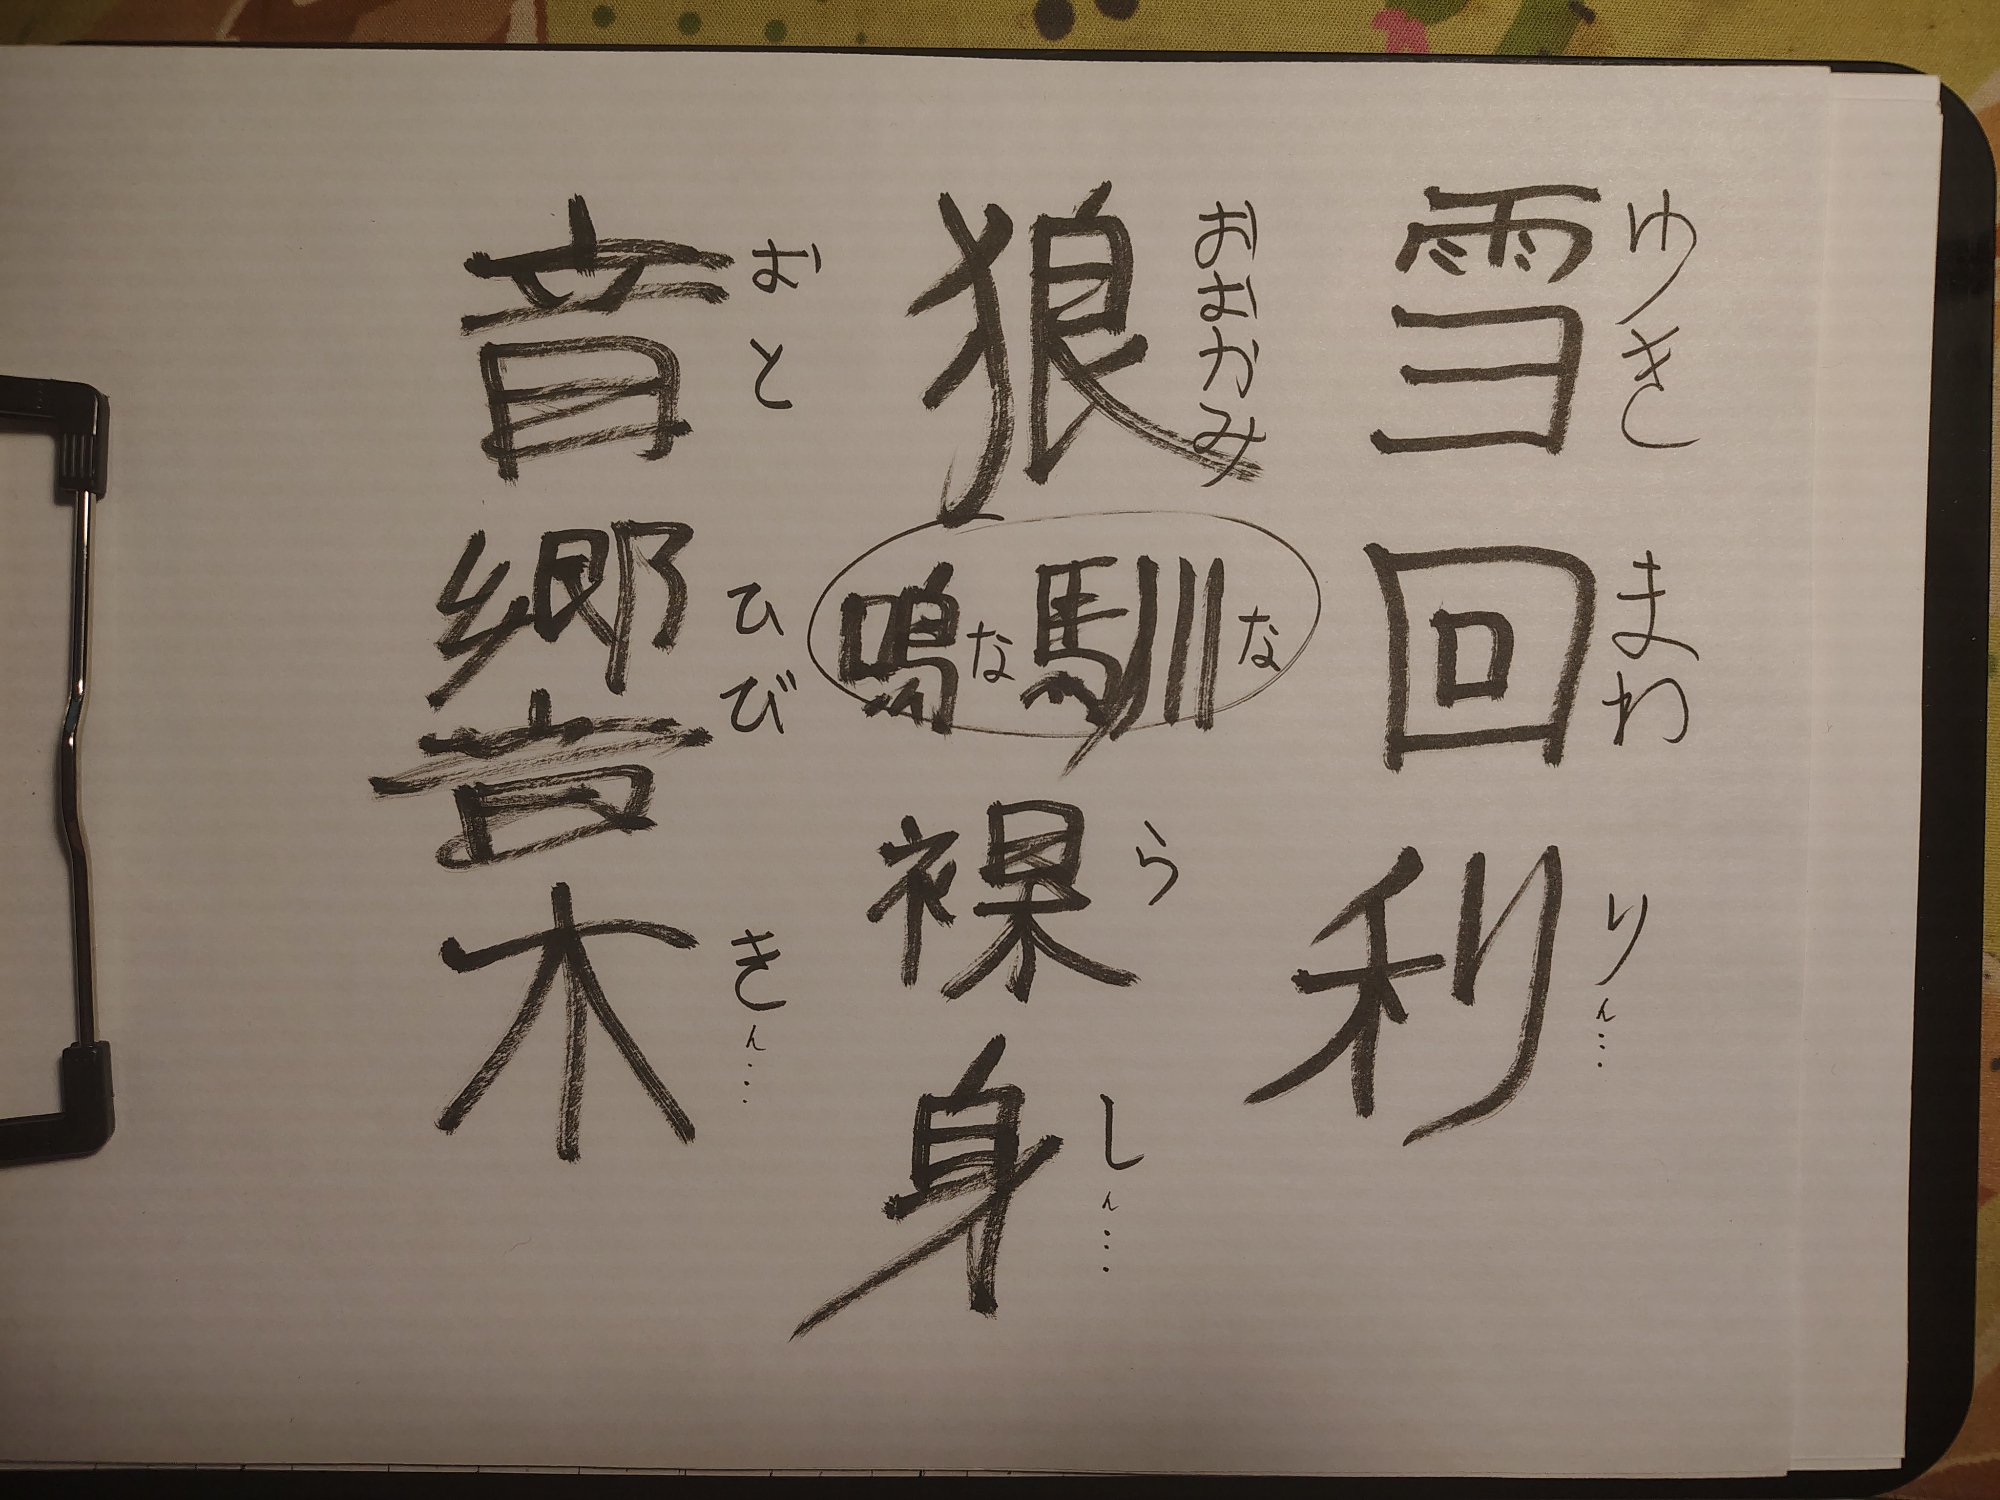 雪回利
ゆきまわりん…
狼鳴馴裸身
おおかみなならしん…
音響木
おとひびきん…